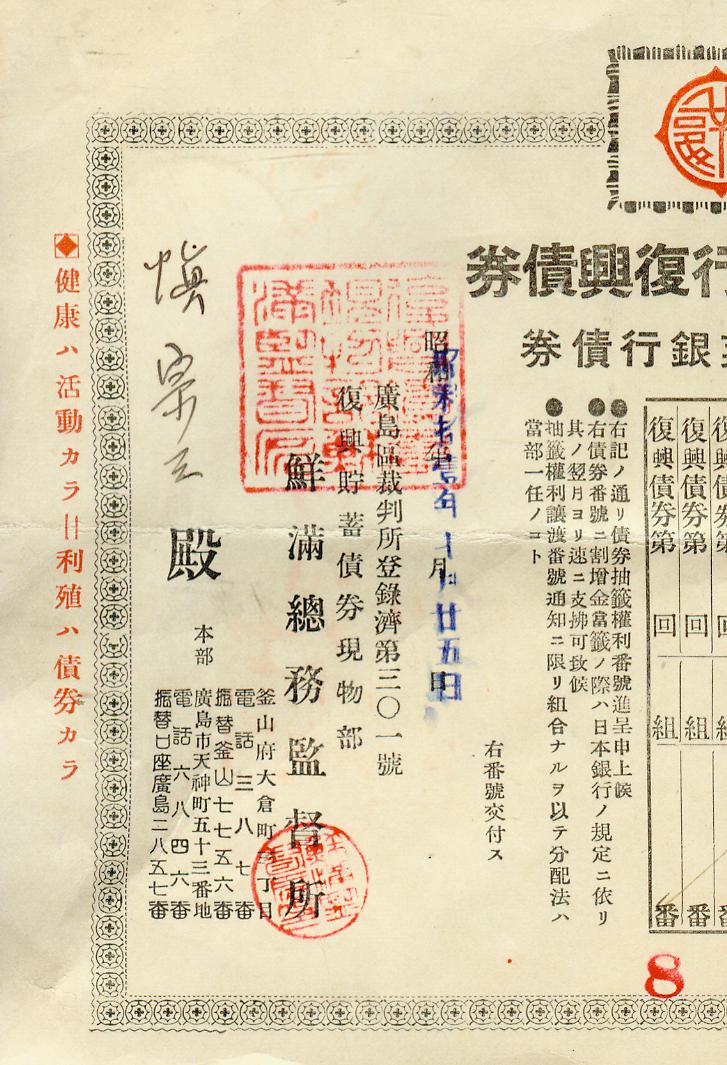 券債興復行
券債行銀
復興債券第 回 組
復興債券第 回 組 番
復興債券第 回 組 番
8
●右記ノ通リ債券抽籤權利番號進呈申上候
●右債券番號ニ割增金當籤ノ際ハ日本銀行ノ規定ニ依リ
其ノ翌月ヨリ速ニ支拂可致候
●抽籤權利讓渡番號通知ニ限リ組合ナルヲ以テ分配法ハ
當部一任ノコト
右番號交付ス
昭和 年 十月廿五日
廣島區裁判所登錄濟第三〇一號
復興貯蓄債券現物部
鮮滿總務監督所
釜山府大倉町 丁目
電話三八七番
振替釜山七七五六番
本部 廣島市天神町五十三番地
電話六八四六番
振替口座廣島二八五七番
殿
◆健康ハ活動カラ=利殖ハ債券カラ